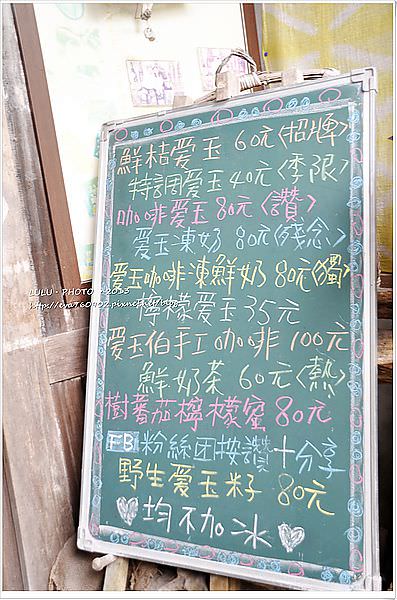 鮮桔愛玉 60元〈招牌〉
特調愛玉 40元〈季限〉
咖啡愛玉 80元〈讚〉
愛玉凍奶 80元〈殘念〉
愛玉咖啡凍鮮奶 80元〈獨〉
檸檬愛玉 35元
愛玉伯手工咖啡 100元
鮮奶茶 60元〈熱〉
樹蕃茄檸檬蜜 80元
FB 粉絲团按讚十分享
野生愛玉籽 80元
均不加冰
LULU · PHOTO · 2013